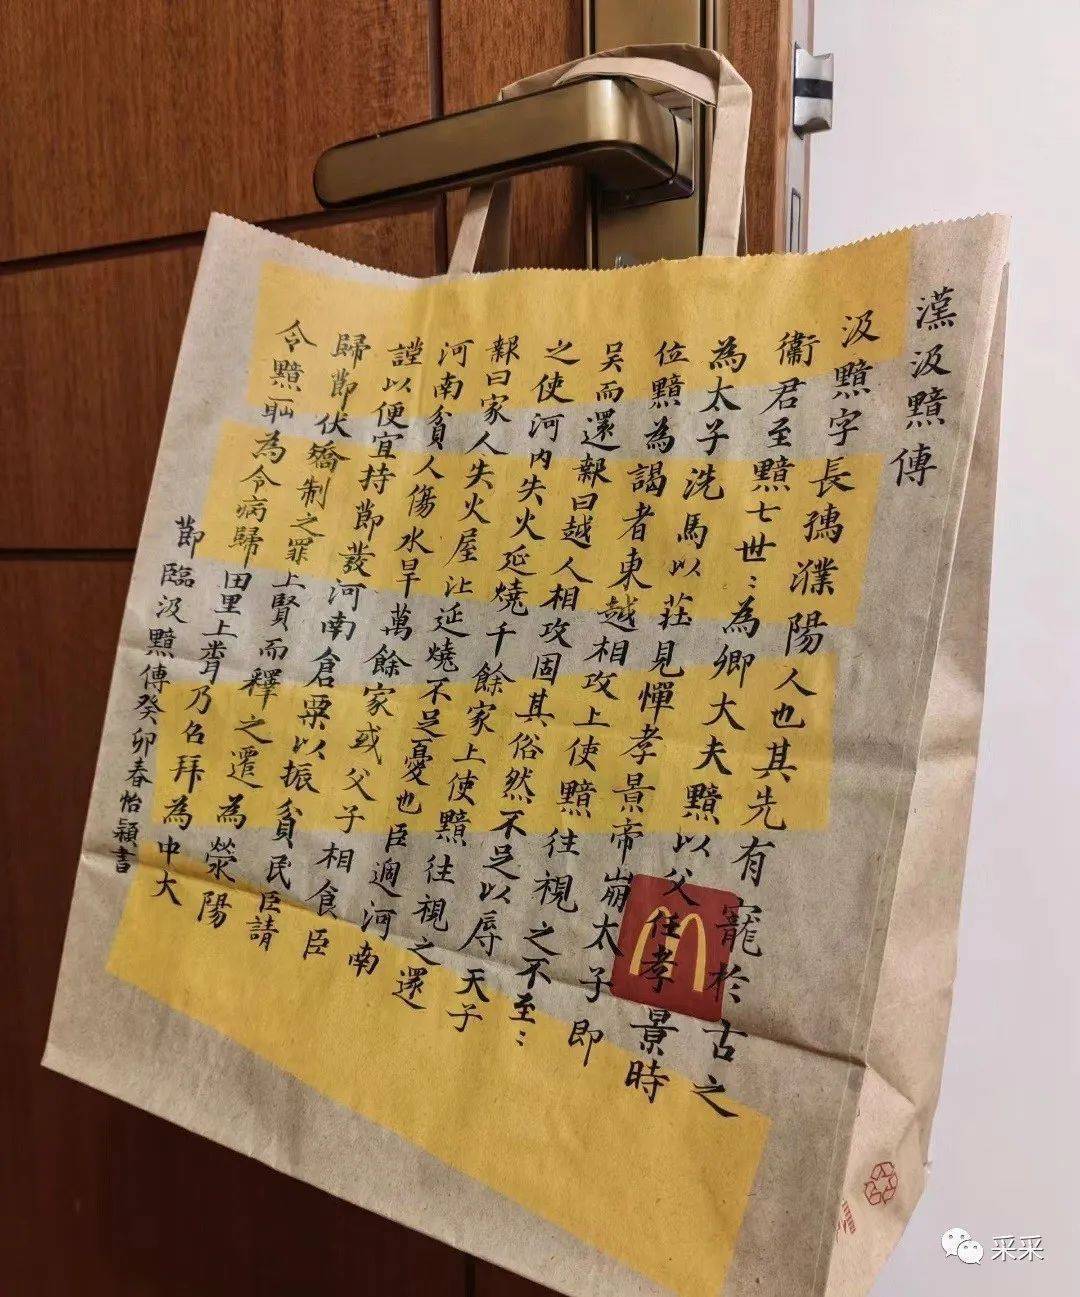 漢汲黯傳
汲黯字長孺濮陽人也其先有寵於古之
衞君至黯七世：為卿大夫黯以父任孝景時
為太子洗馬以莊見憚孝景帝崩太子即
位黯為謁者東越相攻上使黯往視之不至：
吴而還報曰越人相攻固其俗然不足以辱天子
之使河内失火延燒千餘家上使黯往視之還
報曰家人失火屋比延燒不足憂也臣過河南
河南貧人傷水旱萬餘家或父子相食臣
謹以便宜持節發河南倉粟以振貧民臣請
歸節伏矯制之罪上賢而釋之遷為滎陽
令黯恥為令病歸田里上聞乃召拜為中大
節臨汲黯傳癸卯春怡穎書
采采